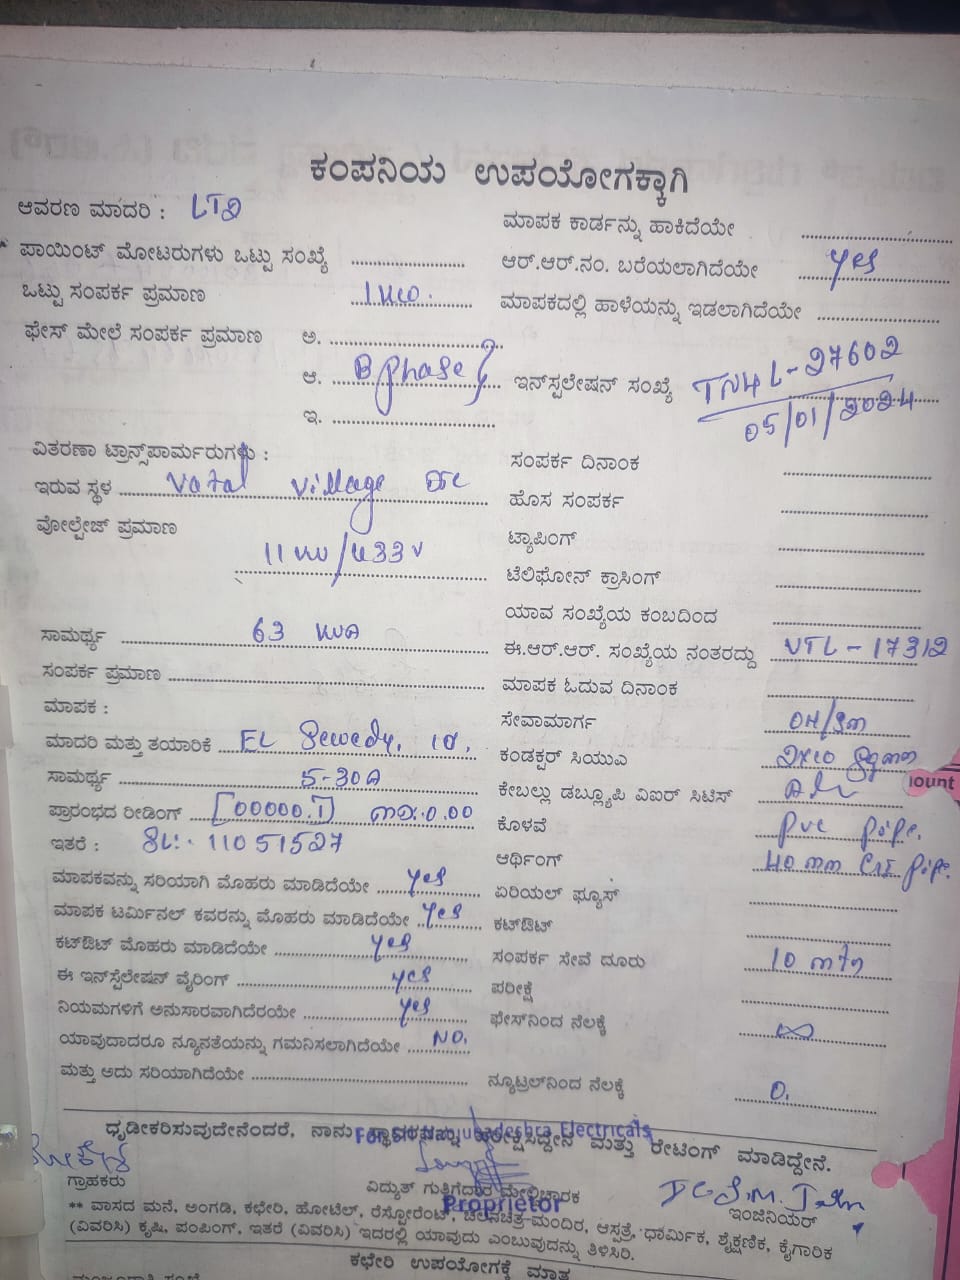 ಕಂಪನಿಯ ಉಪಯೋಗಕ್ಕಾಗಿ
ಆವರಣ ಮಾದರಿ : LT2
ಮಾಪಕ ಕಾರ್ಡನ್ನು ಹಾಕಿದೆಯೇ
ಪಾಯಿಂಟ್ ಮೋಟರುಗಳು ಒಟ್ಟು ಸಂಖ್ಯೆ
ಆರ್.ಆರ್.ನಂ. ಬರೆಯಲಾಗಿದೆಯೇ yes
ಒಟ್ಟು ಸಂಪರ್ಕ ಪ್ರಮಾಣ
ಮಾಪಕದಲ್ಲಿ ಹಾಳೆಯನ್ನು ಇಡಲಾಗಿದೆಯೇ
ಫೇಸ್ ಮೇಲೆ ಸಂಪರ್ಕ ಪ್ರಮಾಣ ಅ.
ಆ. B phase
ಇನ್‌ಸ್ಪಲೇಷನ್ ಸಂಖ್ಯೆ TN4L-27602
05/01/2024
ಇ.
ವಿತರಣಾ ಟ್ರಾನ್ಸ್‌ಪಾರ್ಮರುಗಳು :
ಸಂಪರ್ಕ ದಿನಾಂಕ
ಇರುವ ಸ್ಥಳ Vatal Village
ಹೊಸ ಸಂಪರ್ಕ
ವೋಲ್ಟೇಜ್ ಪ್ರಮಾಣ
ಟ್ಯಾಪಿಂಗ್
11 kv/433v
ಟೆಲಿಫೋನ್ ಕ್ರಾಸಿಂಗ್
ಯಾವ ಸಂಖ್ಯೆಯ ಕಂಬದಿಂದ
ಸಾಮರ್ಥ್ಯ 63 KVA
ಈ.ಆರ್.ಆರ್. ಸಂಖ್ಯೆಯ ನಂತರದ್ದು VTL-17312
ಸಂಪರ್ಕ ಪ್ರಮಾಣ
ಮಾಪಕ ಓದುವ ದಿನಾಂಕ
ಮಾಪಕ :
ಸೇವಾಮಾರ್ಗ
ಮಾದರಿ ಮತ್ತು ತಯಾರಿಕೆ EL Sewedy,
ಕಂಡಕ್ಟರ್ ಸಿಯುವಿ
ಸಾಮರ್ಥ್ಯ 5-30A
ಕೇಬಲ್ಲು ಡಬ್ಲ್ಯೂಪಿ ವಿಐರ್ ಸಿಟಿಸ್
iount
ಪ್ರಾರಂಭದ ರೀಡಿಂಗ್ [00000.1]
ಕೊಳವೆ pvc pipe.
ಇತರೆ : SL:- 11051527
ಆರ್ಥಿಂಗ್
ಮಾಪಕವನ್ನು ಸರಿಯಾಗಿ ಮೊಹರು ಮಾಡಿದೆಯೇ yes
ಏರಿಯಲ್ ಫ್ಯೂಸ್
ಮಾಪಕ ಟರ್ಮಿನಲ್ ಕವರನ್ನು ಮೊಹರು ಮಾಡಿದೆಯೇ yes
ಕಟ್‌ಔಟ್
ಕಟ್‌ಔಟ್ ಮೊಹರು ಮಾಡಿದೆಯೇ yes
ಸಂಪರ್ಕ ಸೇವೆ ದೂರು 10 mtr
ಈ ಇನ್‌ಸ್ಪೆಲೇಷನ್ ವೈರಿಂಗ್ yes
ಪರೀಕ್ಷೆ
ನಿಯಮಗಳಿಗೆ ಅನುಸಾರವಾಗಿದೆರಯೇ yes
ಫೇಸ್‌ನಿಂದ ನೆಲಕ್ಕೆ ∞
ಯಾವುದಾದರೂ ನ್ಯೂನತೆಯನ್ನು ಗಮನಿಸಲಾಗಿದೆಯೇ NO.
ಮತ್ತು ಅದು ಸರಿಯಾಗಿದೆಯೇ
ನ್ಯೂಟ್ರಲ್‌ನಿಂದ ನೆಲಕ್ಕೆ 0.
ಧೃಡೀಕರಿಸುವುದೇನೆಂದರೆ, ನಾನು ಪರೀಕ್ಷಿಸಿದ್ದೇನೆ ಮತ್ತು ರೇಟಿಂಗ್ ಮಾಡಿದ್ದೇನೆ.
Electricals
ಗ್ರಾಹಕರು
ವಿದ್ಯುತ್ ಗುತ್ತಿಗೆದಾರ ಮೇಲ್ವಿಚಾರಕ
ಇಂಜಿನಿಯರ್
Proprietor
** ವಾಸದ ಮನೆ, ಅಂಗಡಿ, ಕಛೇರಿ, ಹೋಟೆಲ್, ರೆಸ್ಟೋರೆಂಟ್, ಚಲನಚಿತ್ರ ಮಂದಿರ, ಆಸ್ಪತ್ರೆ, ಧಾರ್ಮಿಕ, ಶೈಕ್ಷಣಿಕ, ಕೈಗಾರಿಕ
(ವಿವರಿಸಿ) ಕೃಷಿ, ಪಂಪಿಂಗ್, ಇತರೆ (ವಿವರಿಸಿ) ಇದರಲ್ಲಿ ಯಾವುದು ಎಂಬುವುದನ್ನು ತಿಳಿಸಿರಿ.
ಕಛೇರಿ ಉಪಯೋಗಕ್ಕೆ ಮಾತ್ರ